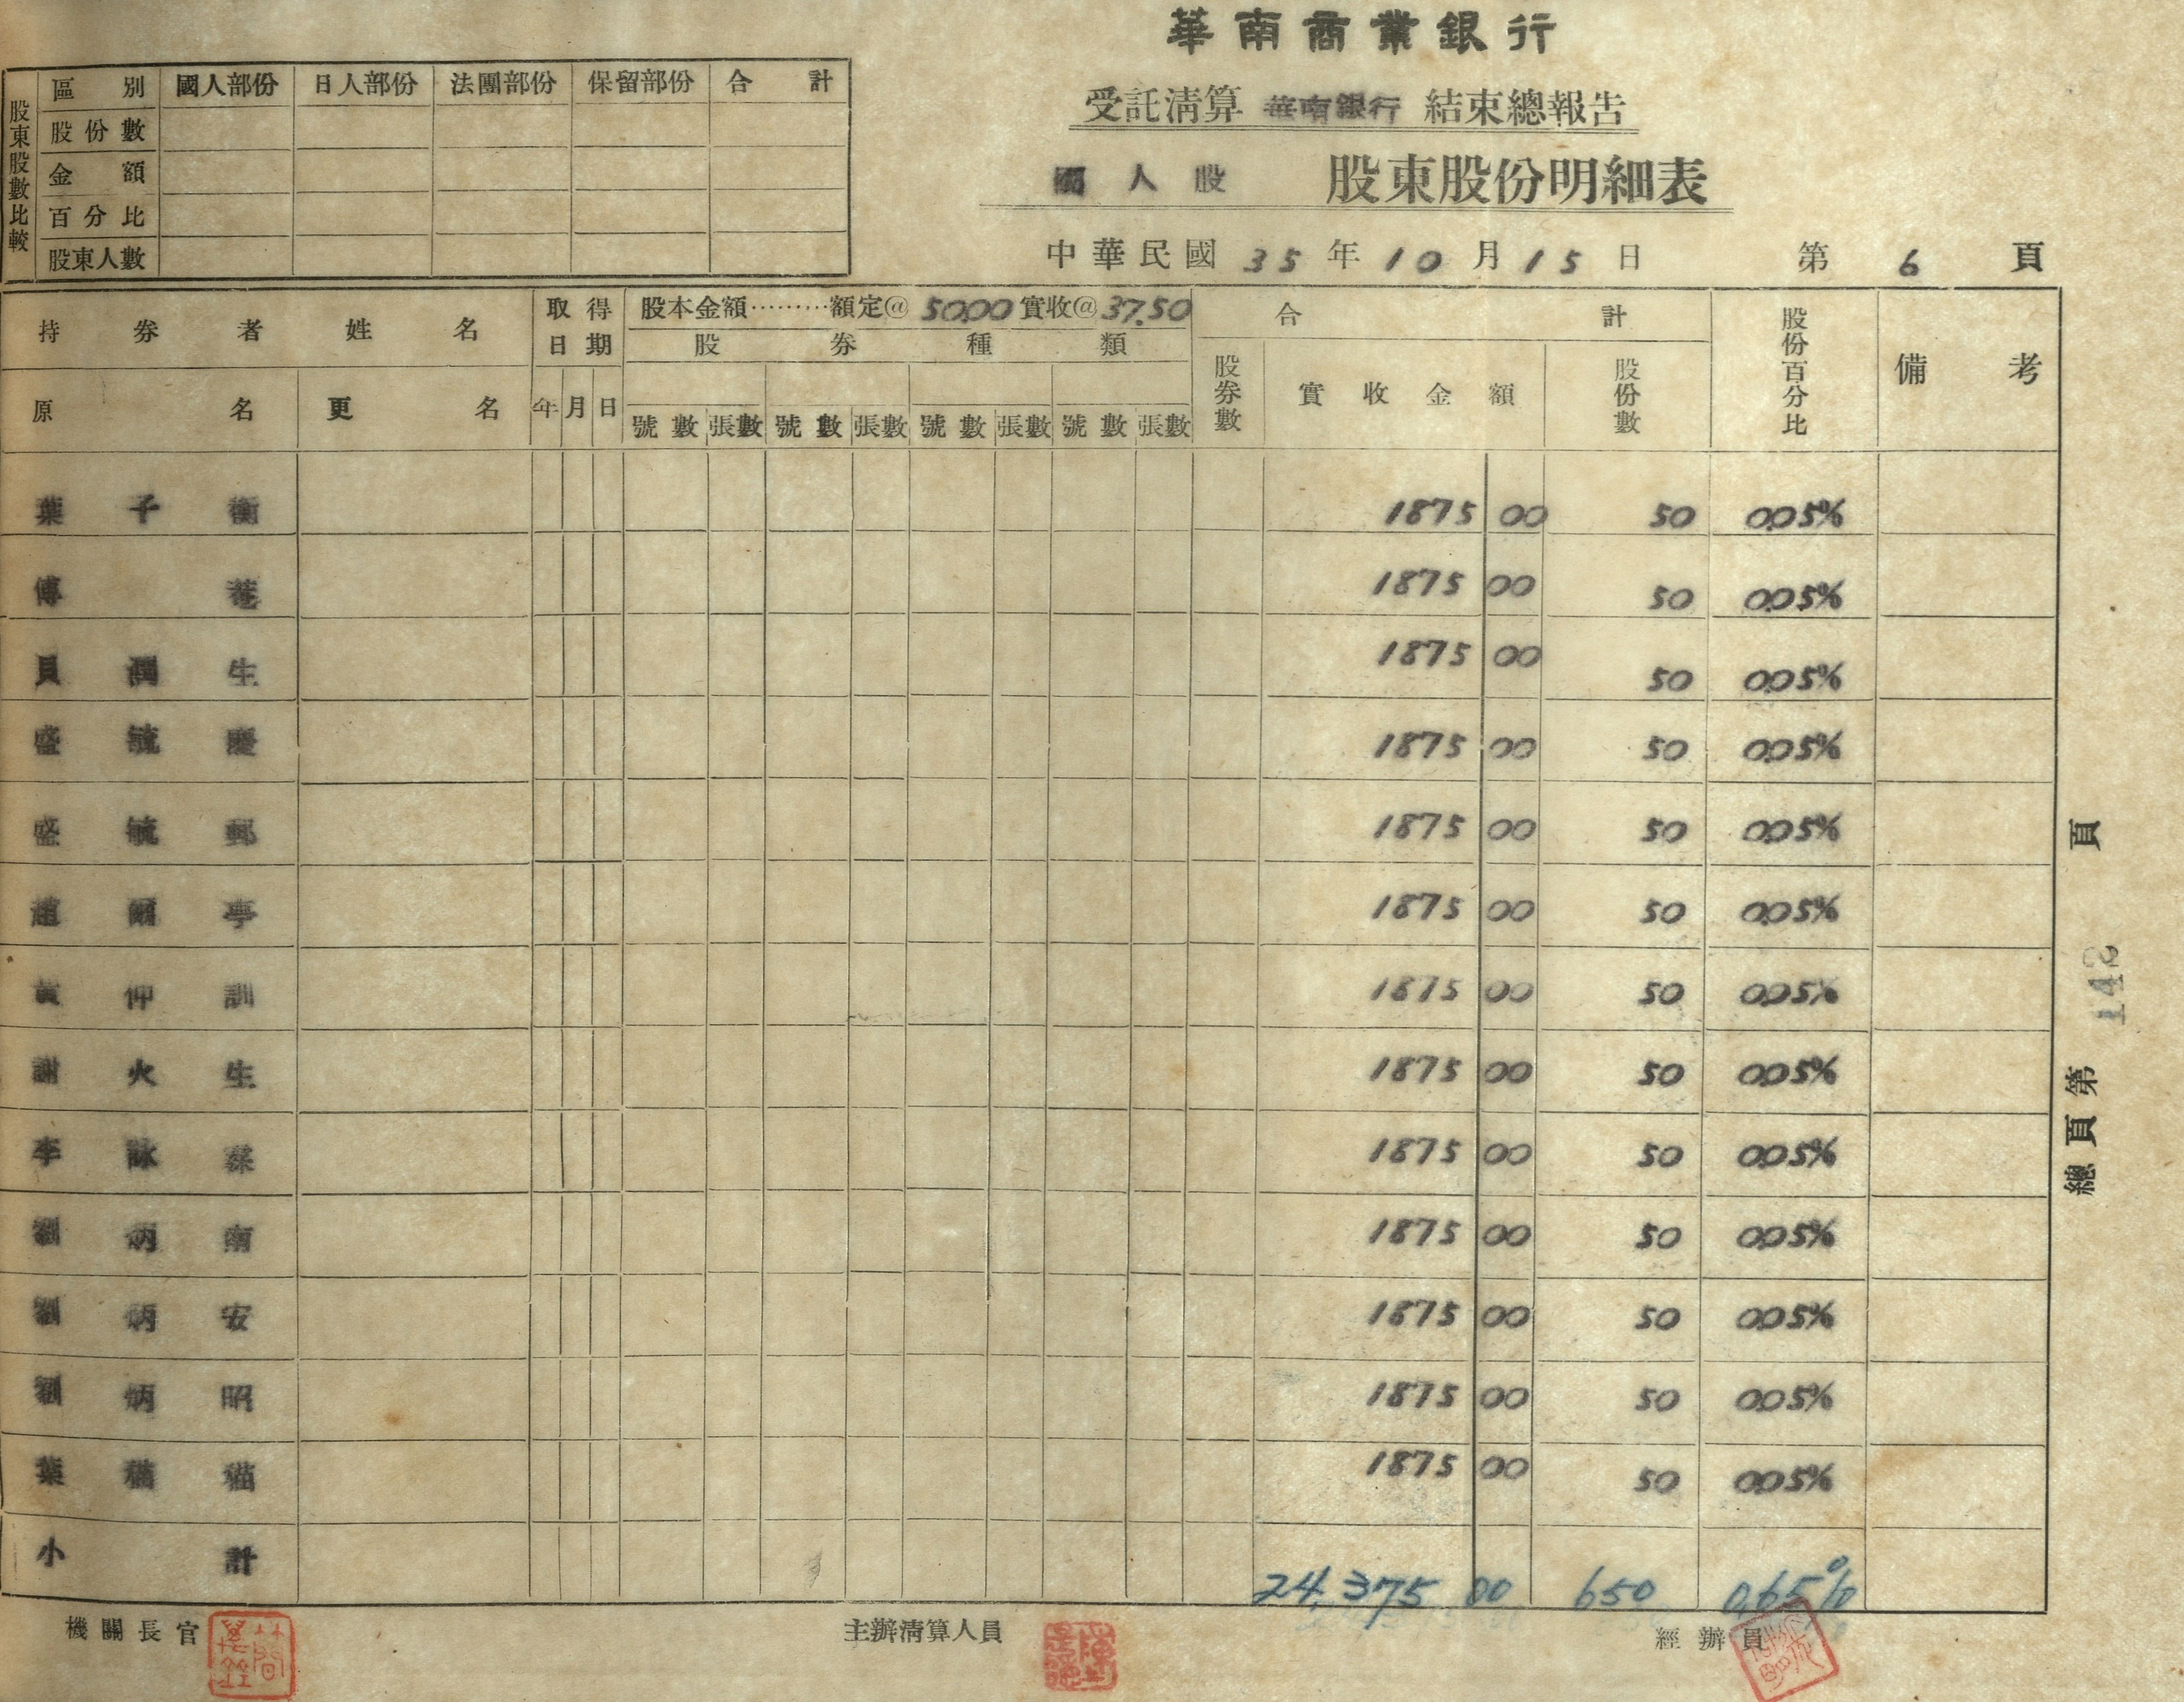 華南商業銀行
受託清算 華南銀行 結束總報告
國人股 股東股份明細表
中華民國 35 年 10 月 15 日 第 6 頁
股東股數比較
區別 國人部份 日人部份 法團部份 保留部份 合計
股份數
金額
百分比
股東人數
持券者姓名 取得日期 股本金額………額定@ 50.00 實收@ 37.50 合計 股份百分比 備考
股券種類
原名 更名 年 月 日 號數 張數 號數 張數 號數 張數 號數 張數 股券數 實收金額 股份數
葉子衡 1875 00 50 0.05%
傅菴 1875 00 50 0.05%
貝潤生 1875 00 50 0.05%
盛毓慶 1875 00 50 0.05%
盛毓郵 1875 00 50 0.05%
趙爾亭 1875 00 50 0.05%
黃仲訓 1875 00 50 0.05%
謝火生 1875 00 50 0.05%
李詠 1875 00 50 0.05%
劉炳南 1875 00 50 0.05%
劉炳安 1875 00 50 0.05%
劉炳昭 1875 00 50 0.05%
葉貓貓 1875 00 50 0.05%
小計 24,375 00 650 0.65%
總頁第 142 頁
機關長官 主辦清算人員 經辦員